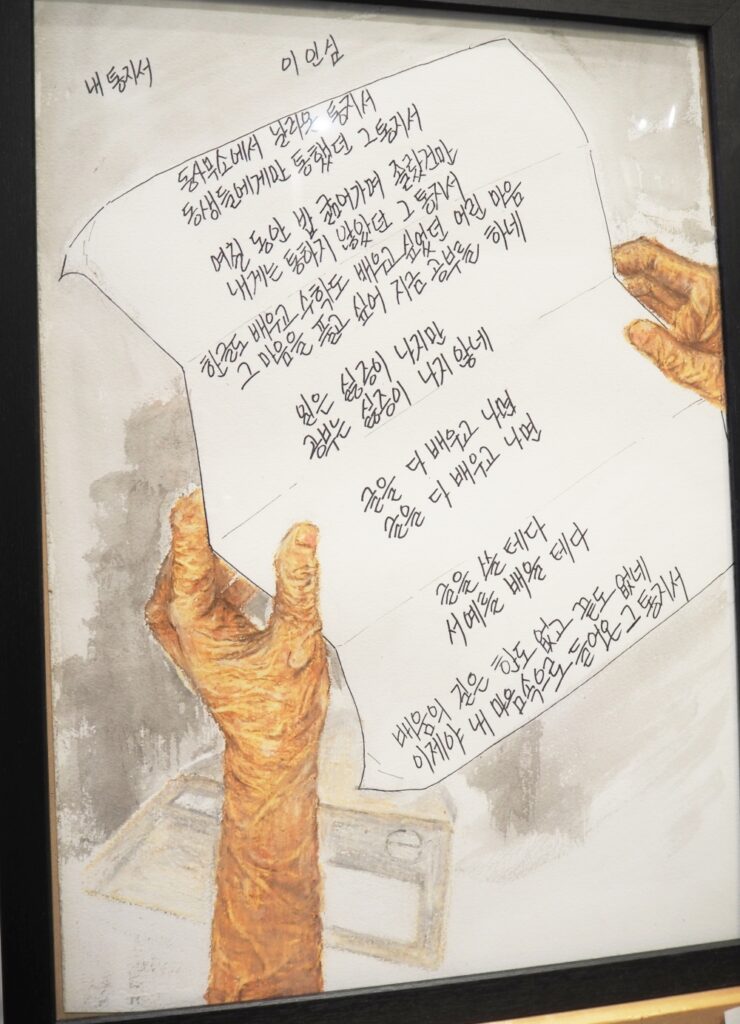 내 통지서
이 인심
동사무소에서 날라온 통지서
동생들에게만 통했던 그 통지서
여러 동안 밥 굶어가며 졸랐건만
내게는 통하지 않았던 그 통지서
한글도 배우고 수학도 배우고 싶었던 어린 마음
그 마음을 풀고 싶어 지금 공부를 하네
일은 싫증이 나지만
공부는 싫증이 나지 않네
글을 다 배우고 나면
글을 다 배우고 나면
글을 쓸 테다
서예를 배울 테다
배움의 길은 한도 없고 끝도 없네
이제야 내 마음속으로 들어온 그 통지서